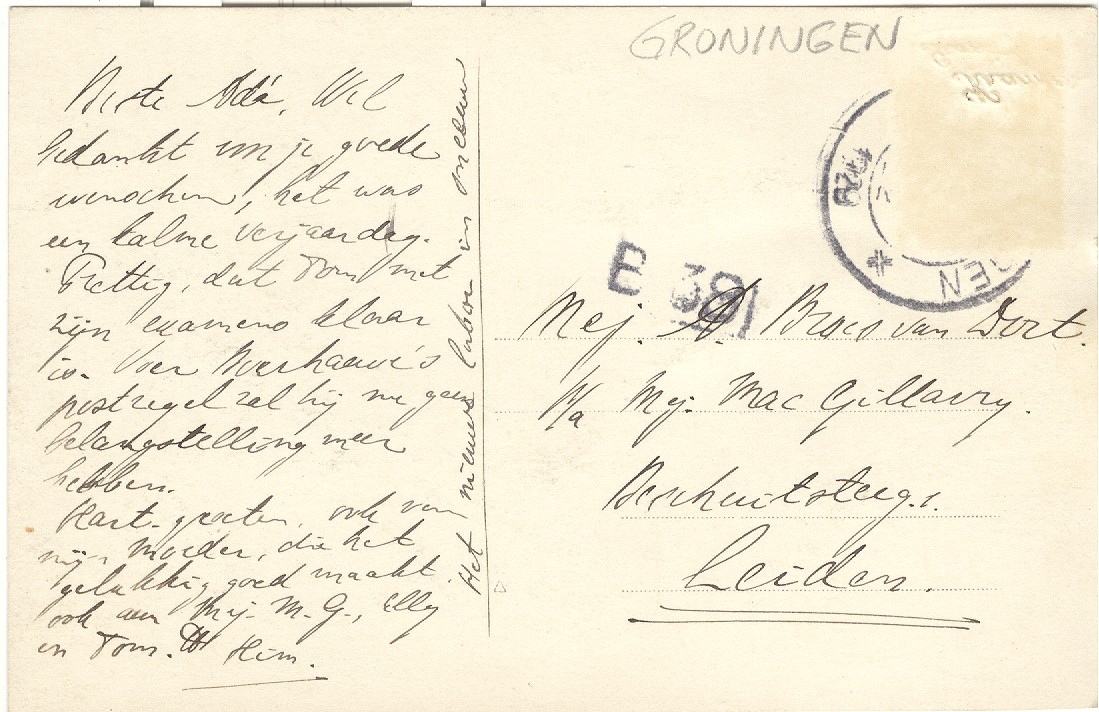 GRONINGEN
Beste Ada, Wel
bedankt voor je goede
wenschen, het was
een kalme verjaardag.
Prettig, dat Tom met
zijn examens klaar
is. Voor Boerhaave's
postzegel zal hij nu geen
belangstelling meer
hebben.
Hart. groeten, ook van
mijn moeder, die het
gelukkig goed maakt.
ook aan Mej. M. G., Elly
en Tom. Wim.
Het nieuwe labor in sneeuw
GEN
E 39
Mej. A. Broers van Dort.
p/a Mej. Mac Gillavry.
Beschuitsteeg 1.
Leiden.